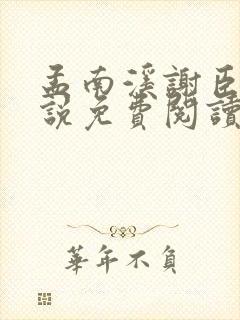 孟南溪謝臣
說免費閱讀
華年不負